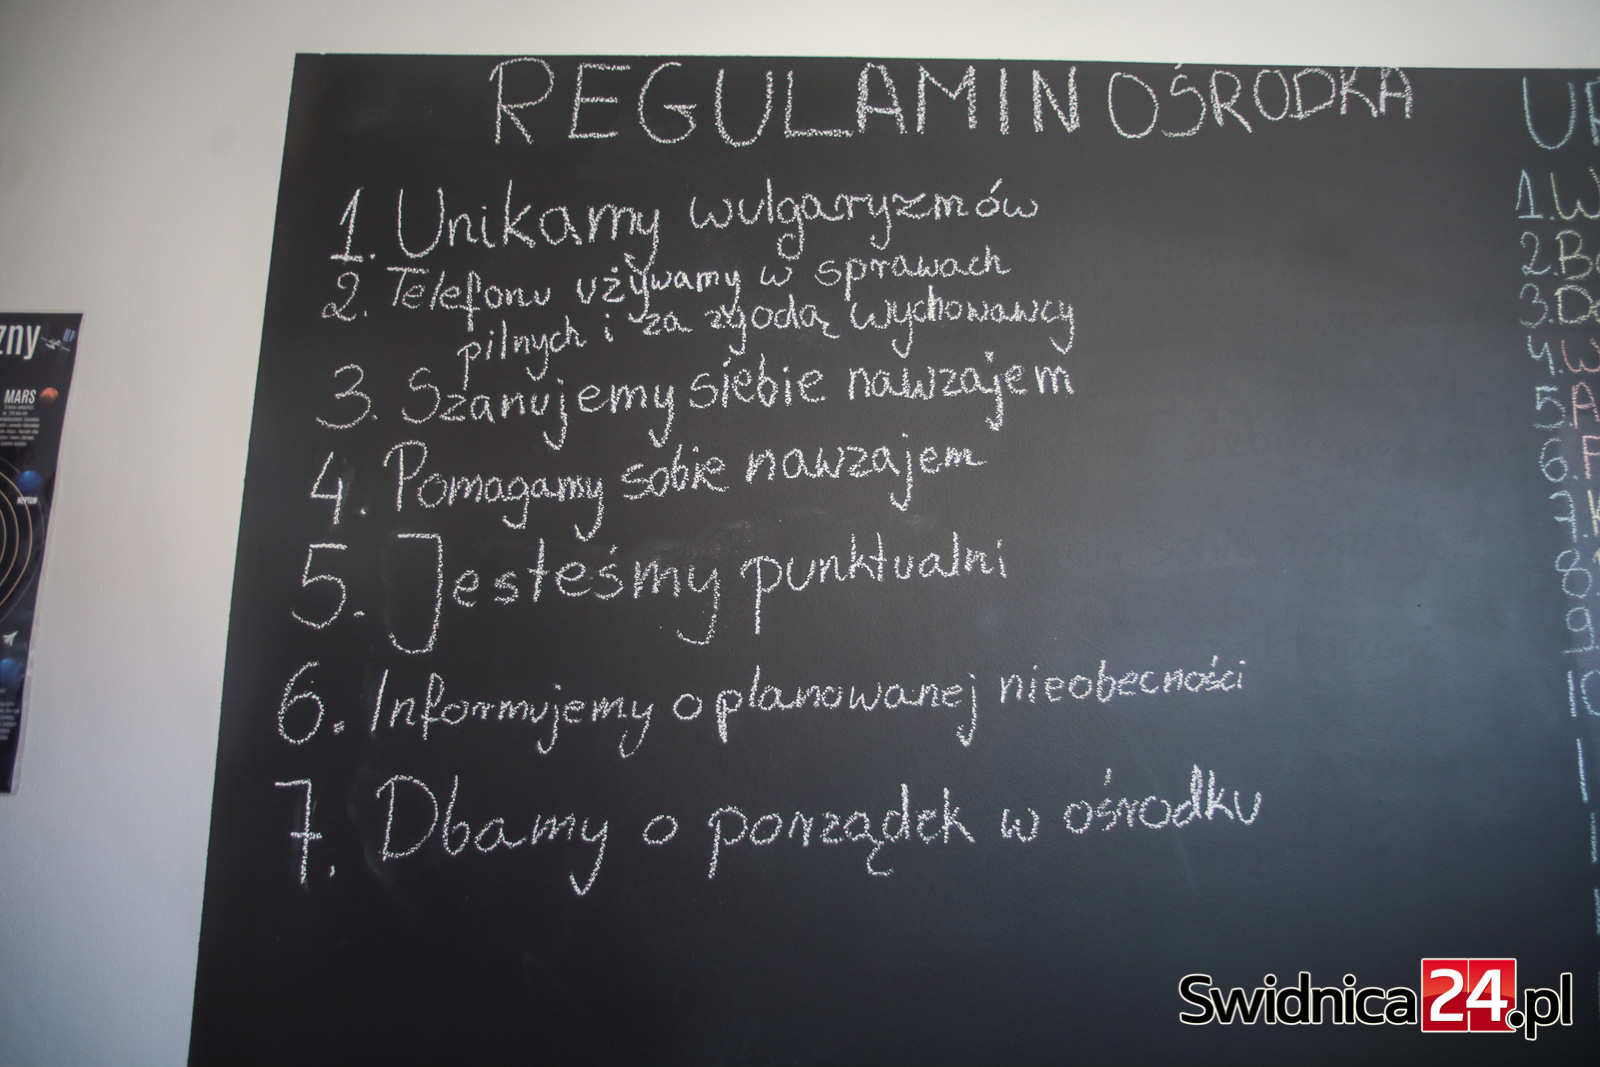 REGULAMIN OŚRODKA
1. Unikamy wulgaryzmów
2. Telefonu używamy w sprawach
pilnych i za zgodą wychowawcy
3. Szanujemy siebie nawzajem
4. Pomagamy sobie nawzajem
5. Jesteśmy punktualni
6. Informujemy o planowanej nieobecności
7. Dbamy o porządek w ośrodku
zny
MARS
NEPTUN
1.
2.
3.
4.
5.
6.
7.
8.
9
10
Swidnica24.pl